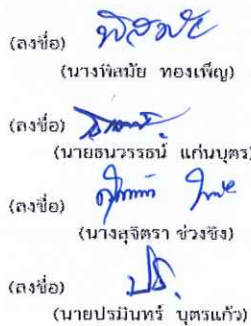 (ลงชื่อ)
(นางพิสมัย ทองเพ็ญ)
(ลงชื่อ)
(นายธนวรรธน์ แก่นบุตร)
(ลงชื่อ)
(นางสุจิตรา ช่วงชิง)
(ลงชื่อ)
(นายปรมินทร์ บุตรแก้ว)